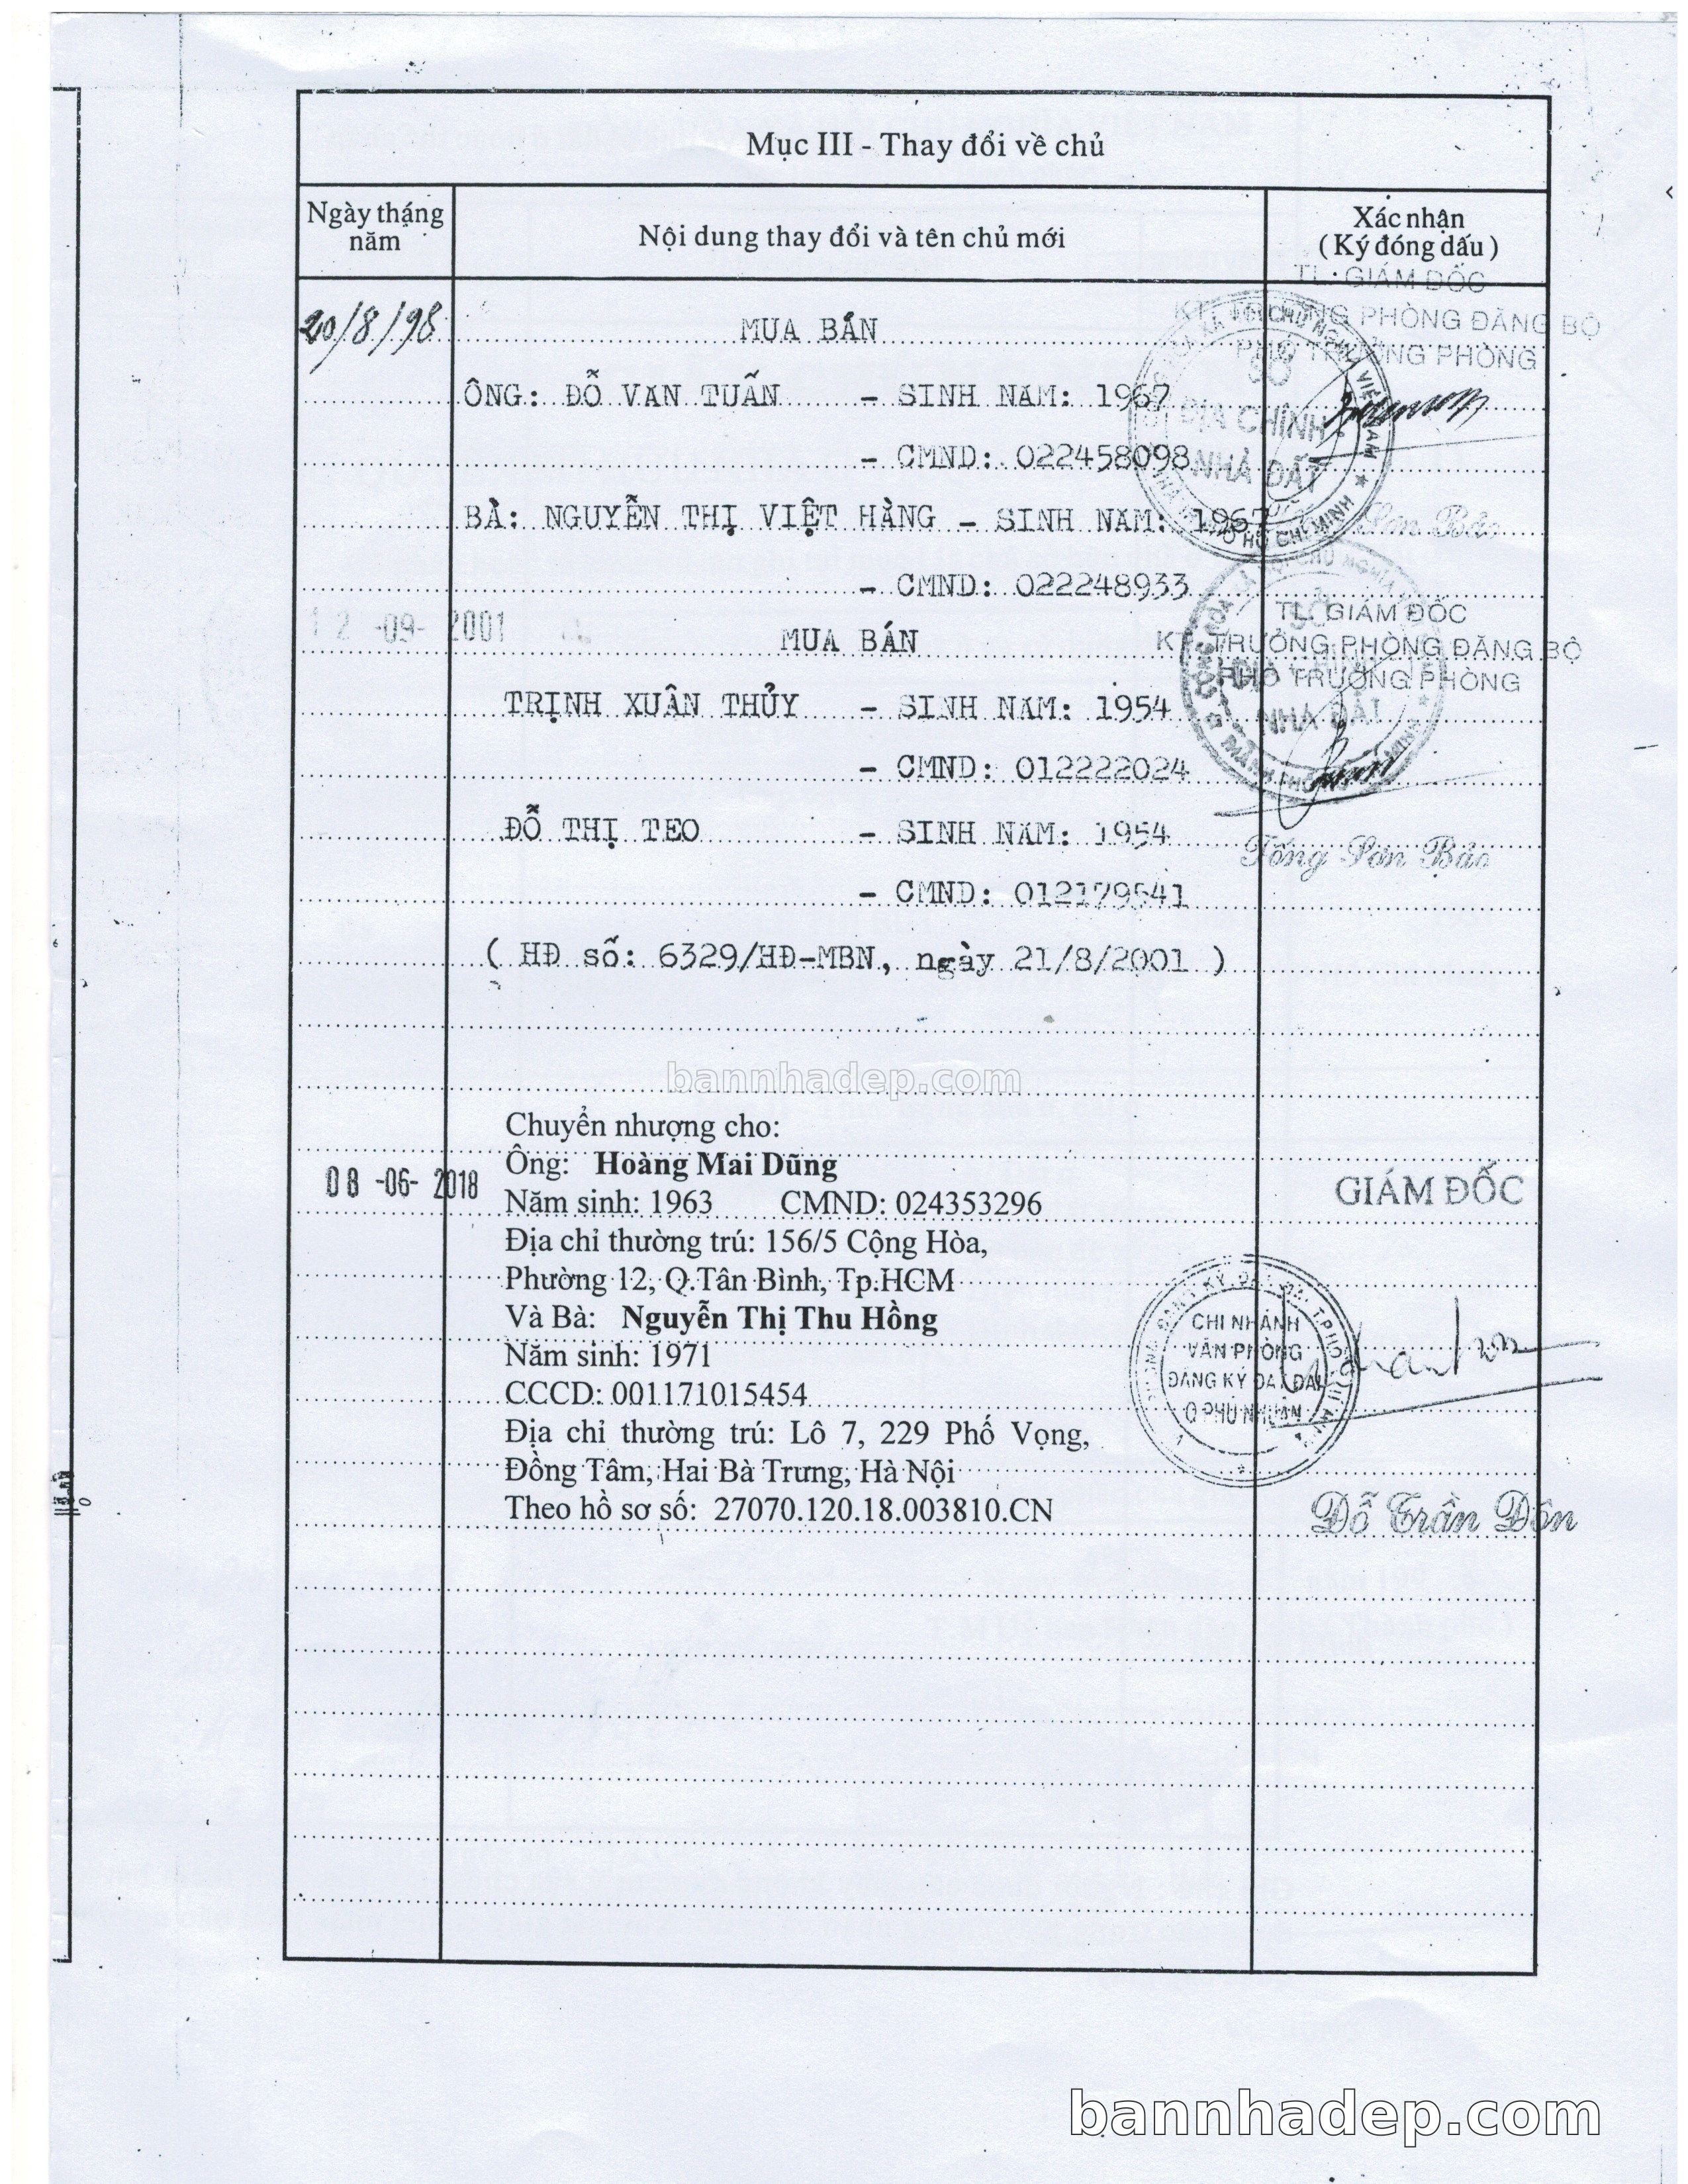 Mục III - Thay đổi về chủ
Ngày tháng năm
Nội dung thay đổi và tên chủ mới
Xác nhận
( Ký đóng dấu )
TL. GIÁM ĐỐC
PHÒNG ĐĂNG BỘ
PHÓ TRƯỞNG PHÒNG
20/8/98
MUA BÁN
ÔNG: ĐỖ VAN TUẤN - SINH NAM: 1967
- CMND: 022458098
BÀ: NGUYỄN THỊ VIỆT HẰNG - SINH NAM: 1967
- CMND: 022248933
SỞ
ĐỊA CHÍNH
NHÀ ĐẤT
Sơn Bảo
12 -09- 2001
MUA BÁN
TL. GIÁM ĐỐC
KT. TRƯỞNG PHÒNG ĐĂNG BỘ
PHÓ TRƯỞNG PHÒNG
NHÀ ĐẤT
TRỊNH XUÂN THỦY - SINH NAM: 1954
- CMND: 012222024
ĐỖ THỊ TEO - SINH NAM: 1954
Tống Sơn Bảo
- CMND: 012179541
( HĐ số: 6329/HĐ-MBN, ngày 21/8/2001 )
bannhadep.com
08 -06- 2018
Chuyển nhượng cho:
Ông: Hoàng Mai Dũng
Năm sinh: 1963 CMND: 024353296
Địa chỉ thường trú: 156/5 Cộng Hòa,
Phường 12, Q.Tân Bình, Tp.HCM
Và Bà: Nguyễn Thị Thu Hồng
Năm sinh: 1971
CCCD: 001171015454
Địa chỉ thường trú: Lô 7, 229 Phố Vọng,
Đồng Tâm, Hai Bà Trưng, Hà Nội
Theo hồ sơ số: 27070.120.18.003810.CN
GIÁM ĐỐC
CHI NHÁNH
VĂN PHÒNG
ĐĂNG KÝ ĐẤT ĐAI
Q PHÚ NHUẬN
Đỗ Trần Đôn
bannhadep.com